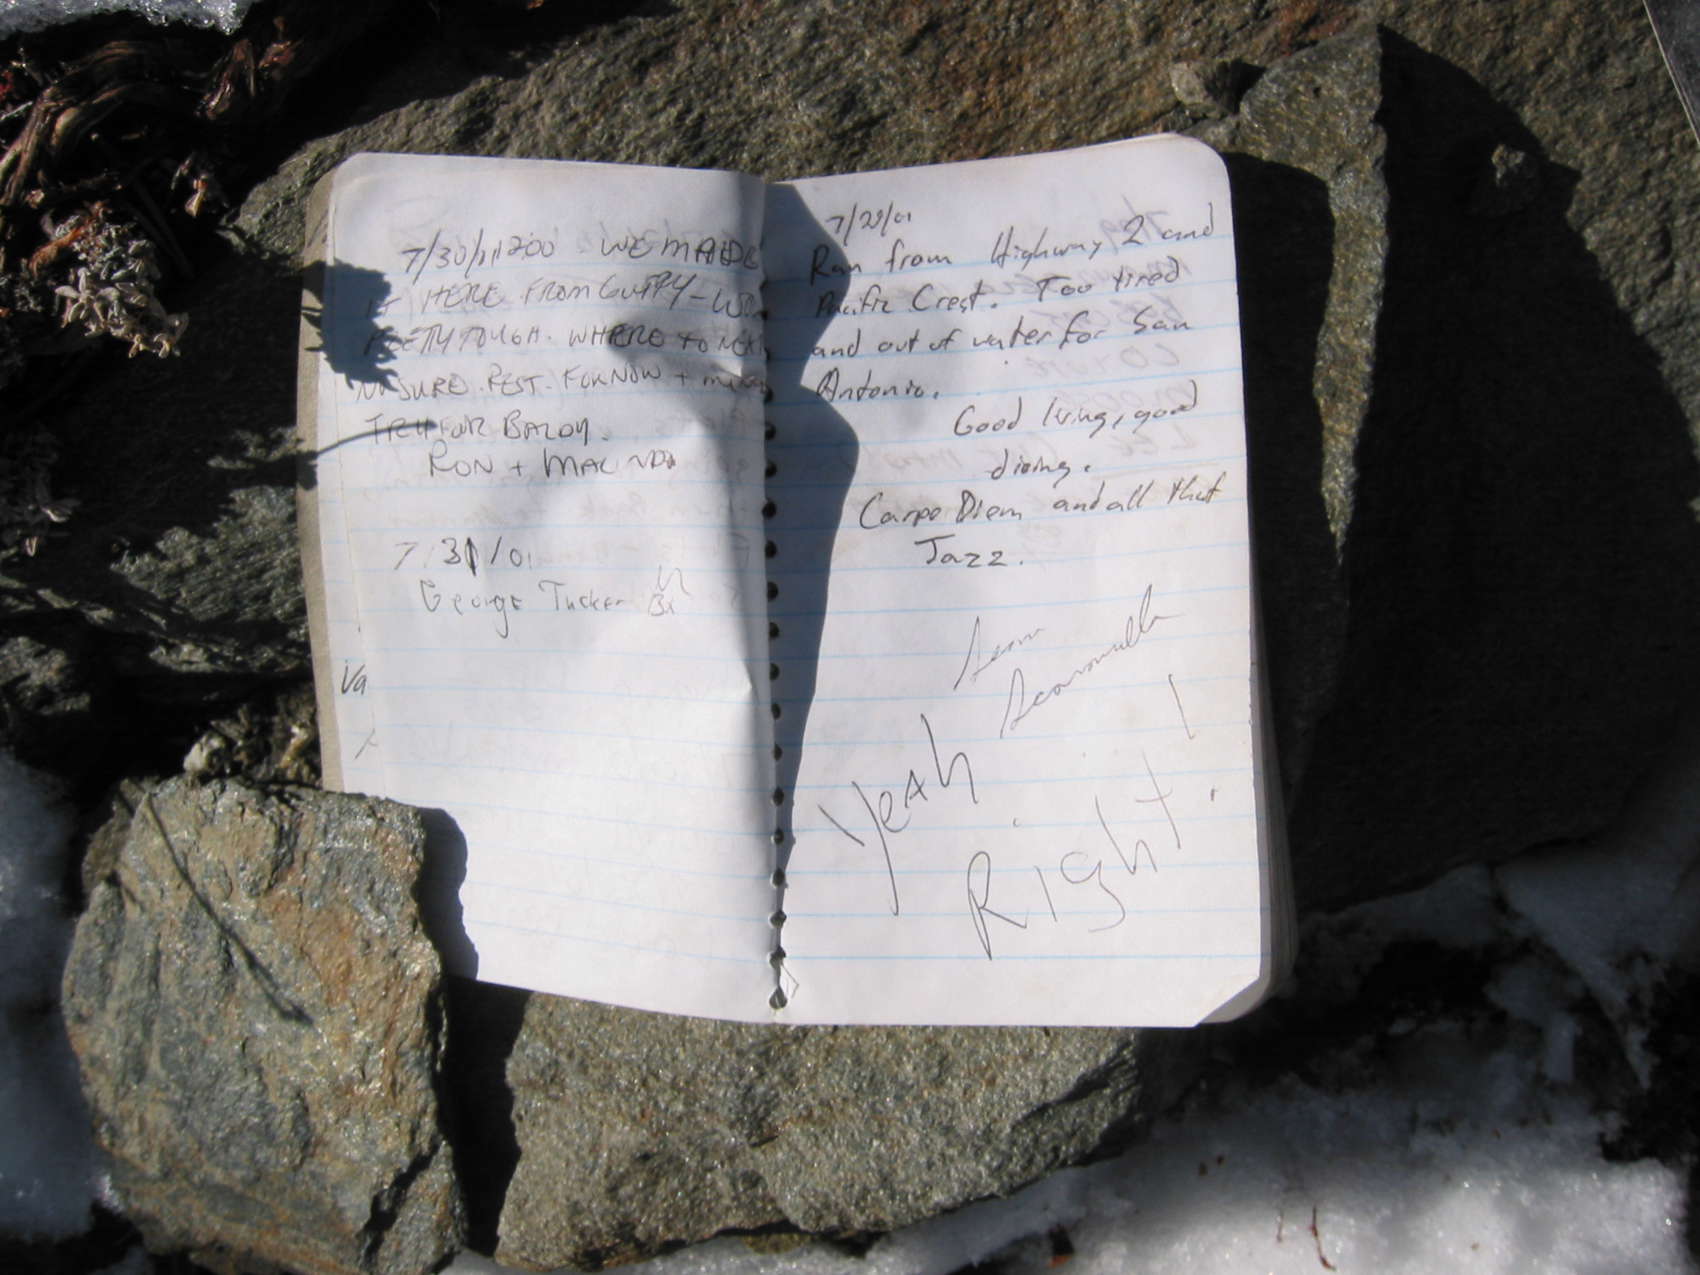 7/30/01 1200 WE MADE
IT HERE FROM GUFFY - WAS
PRETTY TOUGH. WHERE TO NEXT
NOT SURE. REST. FOR NOW +
TRY FOR BALDY.
RON + MALINDA
7/31/01
George Tucker
Va
7/29/01
Ran from Highway 2 and
Pacific Crest. Too tired
and out of water for San
Antonio.
Good living, good
dying.
Carpe Diem and all that
Jazz.
Yeah
Right!